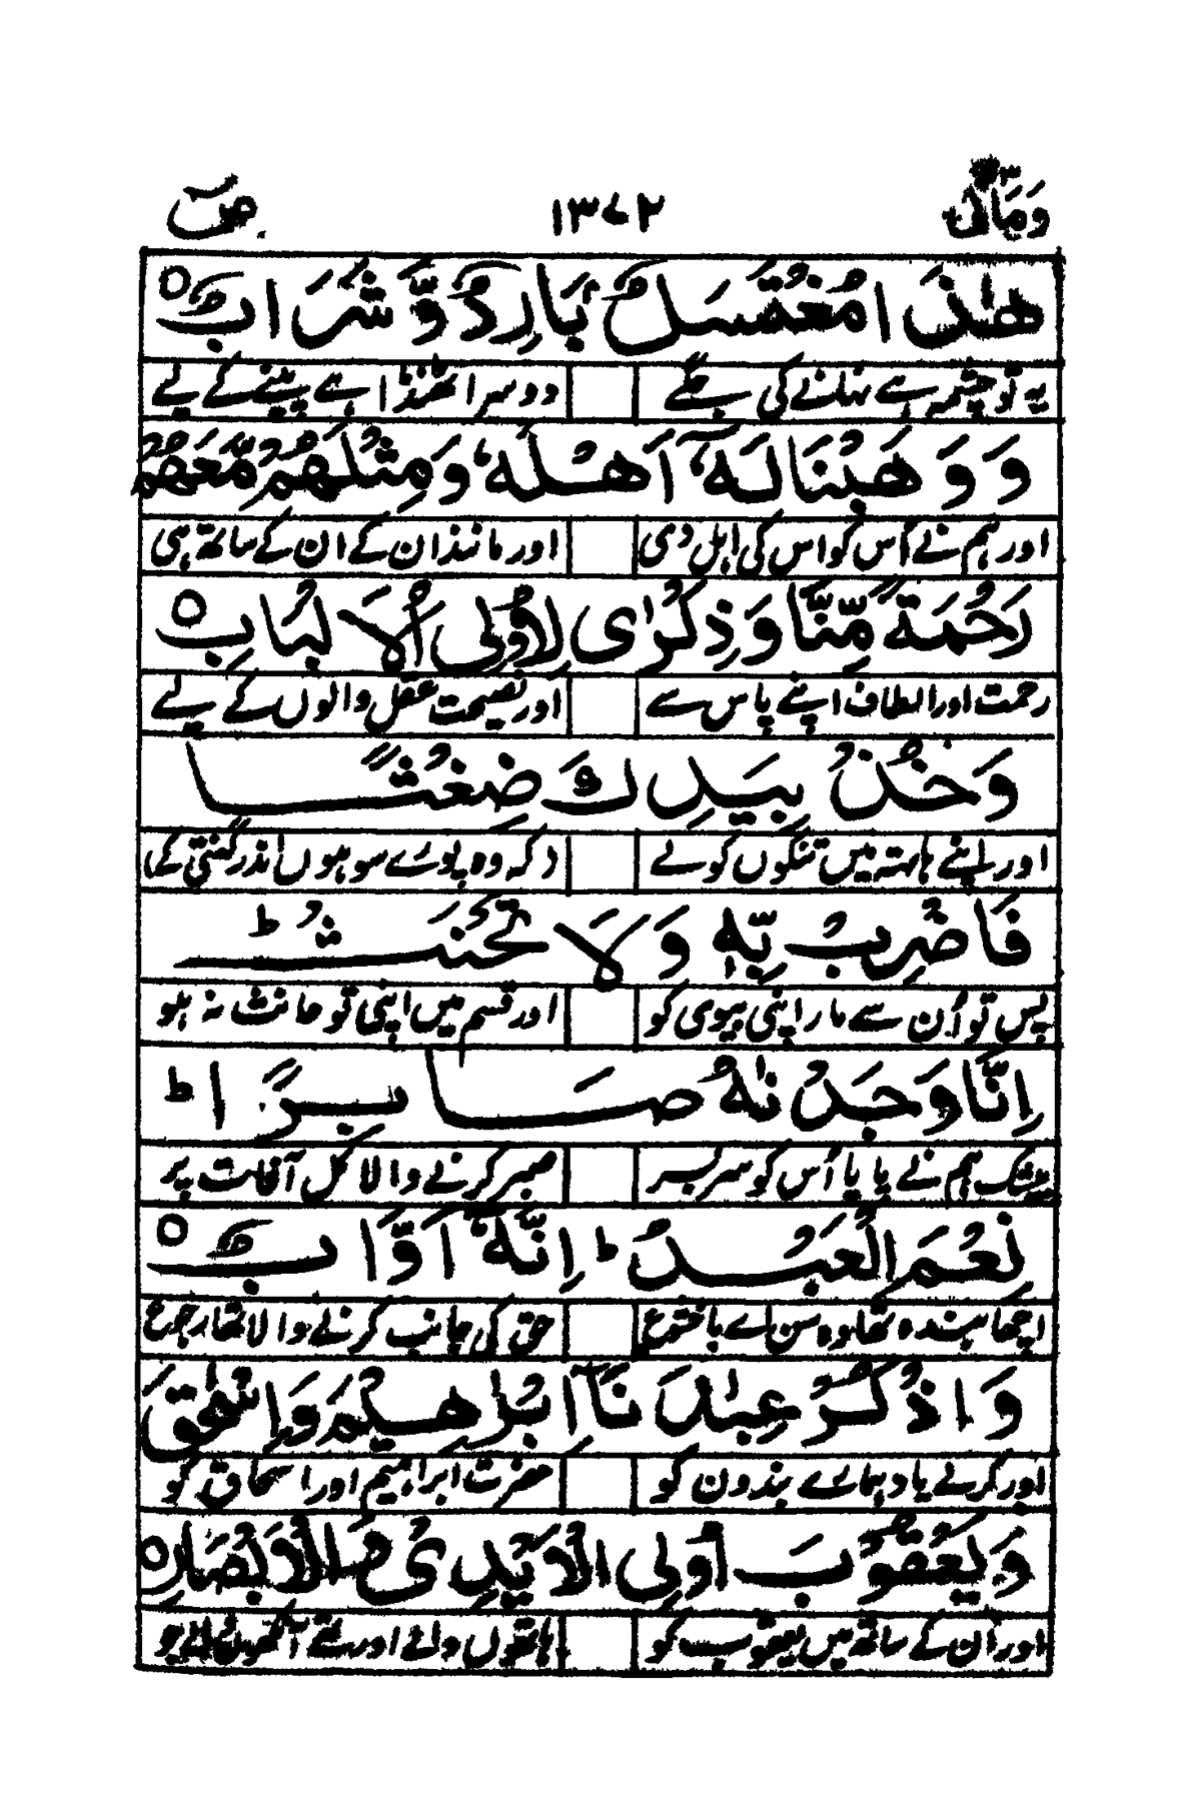 وَمَالِیَ ٢٣ ١٣٧٢ صٓ
هٰذَا مُغْتَسَلٌۢ بَارِدٌ وَّشَرَابٌ ۝
یہ تو چشمہ ہے نہانے کی جگہ دوسرا ٹھنڈا ہے پینے کے لیے
وَوَهَبْنَا لَهٗۤ اَهْلَهٗ وَمِثْلَهُمْ مَّعَهُمْ
اور ہم نے اُس کو اس کی اہل دی اور مانند ان کے ان کے ساتھ ہی
رَحْمَةً مِّنَّا وَذِكْرٰی لِاُولِی الْاَلْبَابِ ۝
رحمت اور الطاف اپنے پاس سے اور نصیحت عقل والوں کے لیے
وَخُذْ بِیَدِكَ ضِغْثًا
اور اپنے ہاتھ میں تنکوں کو لے (کہ وہ پورے سو ہوں اندر گنتی کے)
فَاضْرِبْ بِّهٖ وَلَا تَحْنَثْ ؕ
پس تو اُن سے مار اپنی بیوی کو اور قسم میں اپنی تو حانث نہ ہو
اِنَّا وَجَدْنٰهُ صَابِرًا ؕ
بیشک ہم نے پایا اُس کو سر بسر صبر کرنے والا کل آفات پر
نِعْمَ الْعَبْدُ ؕ اِنَّهٗۤ اَوَّابٌ ۝
اچھا بندہ تھا وہ سن اے با خشوع حق کی جانب کرنے والا تھا رجوع
وَاذْكُرْ عِبٰدَنَاۤ اِبْرٰهِیْمَ وَاِسْحٰقَ
اور کر لے یاد ہمارے بندوں کو حضرت ابراہیم اور اسحاق کو
وَیَعْقُوْبَ اُولِی الْاَیْدِیْ وَالْاَبْصَارِ ۝
اور اُن کے ساتھ میں یعقوب کو ہاتھوں والے اور تھے آنکھوں والے جو